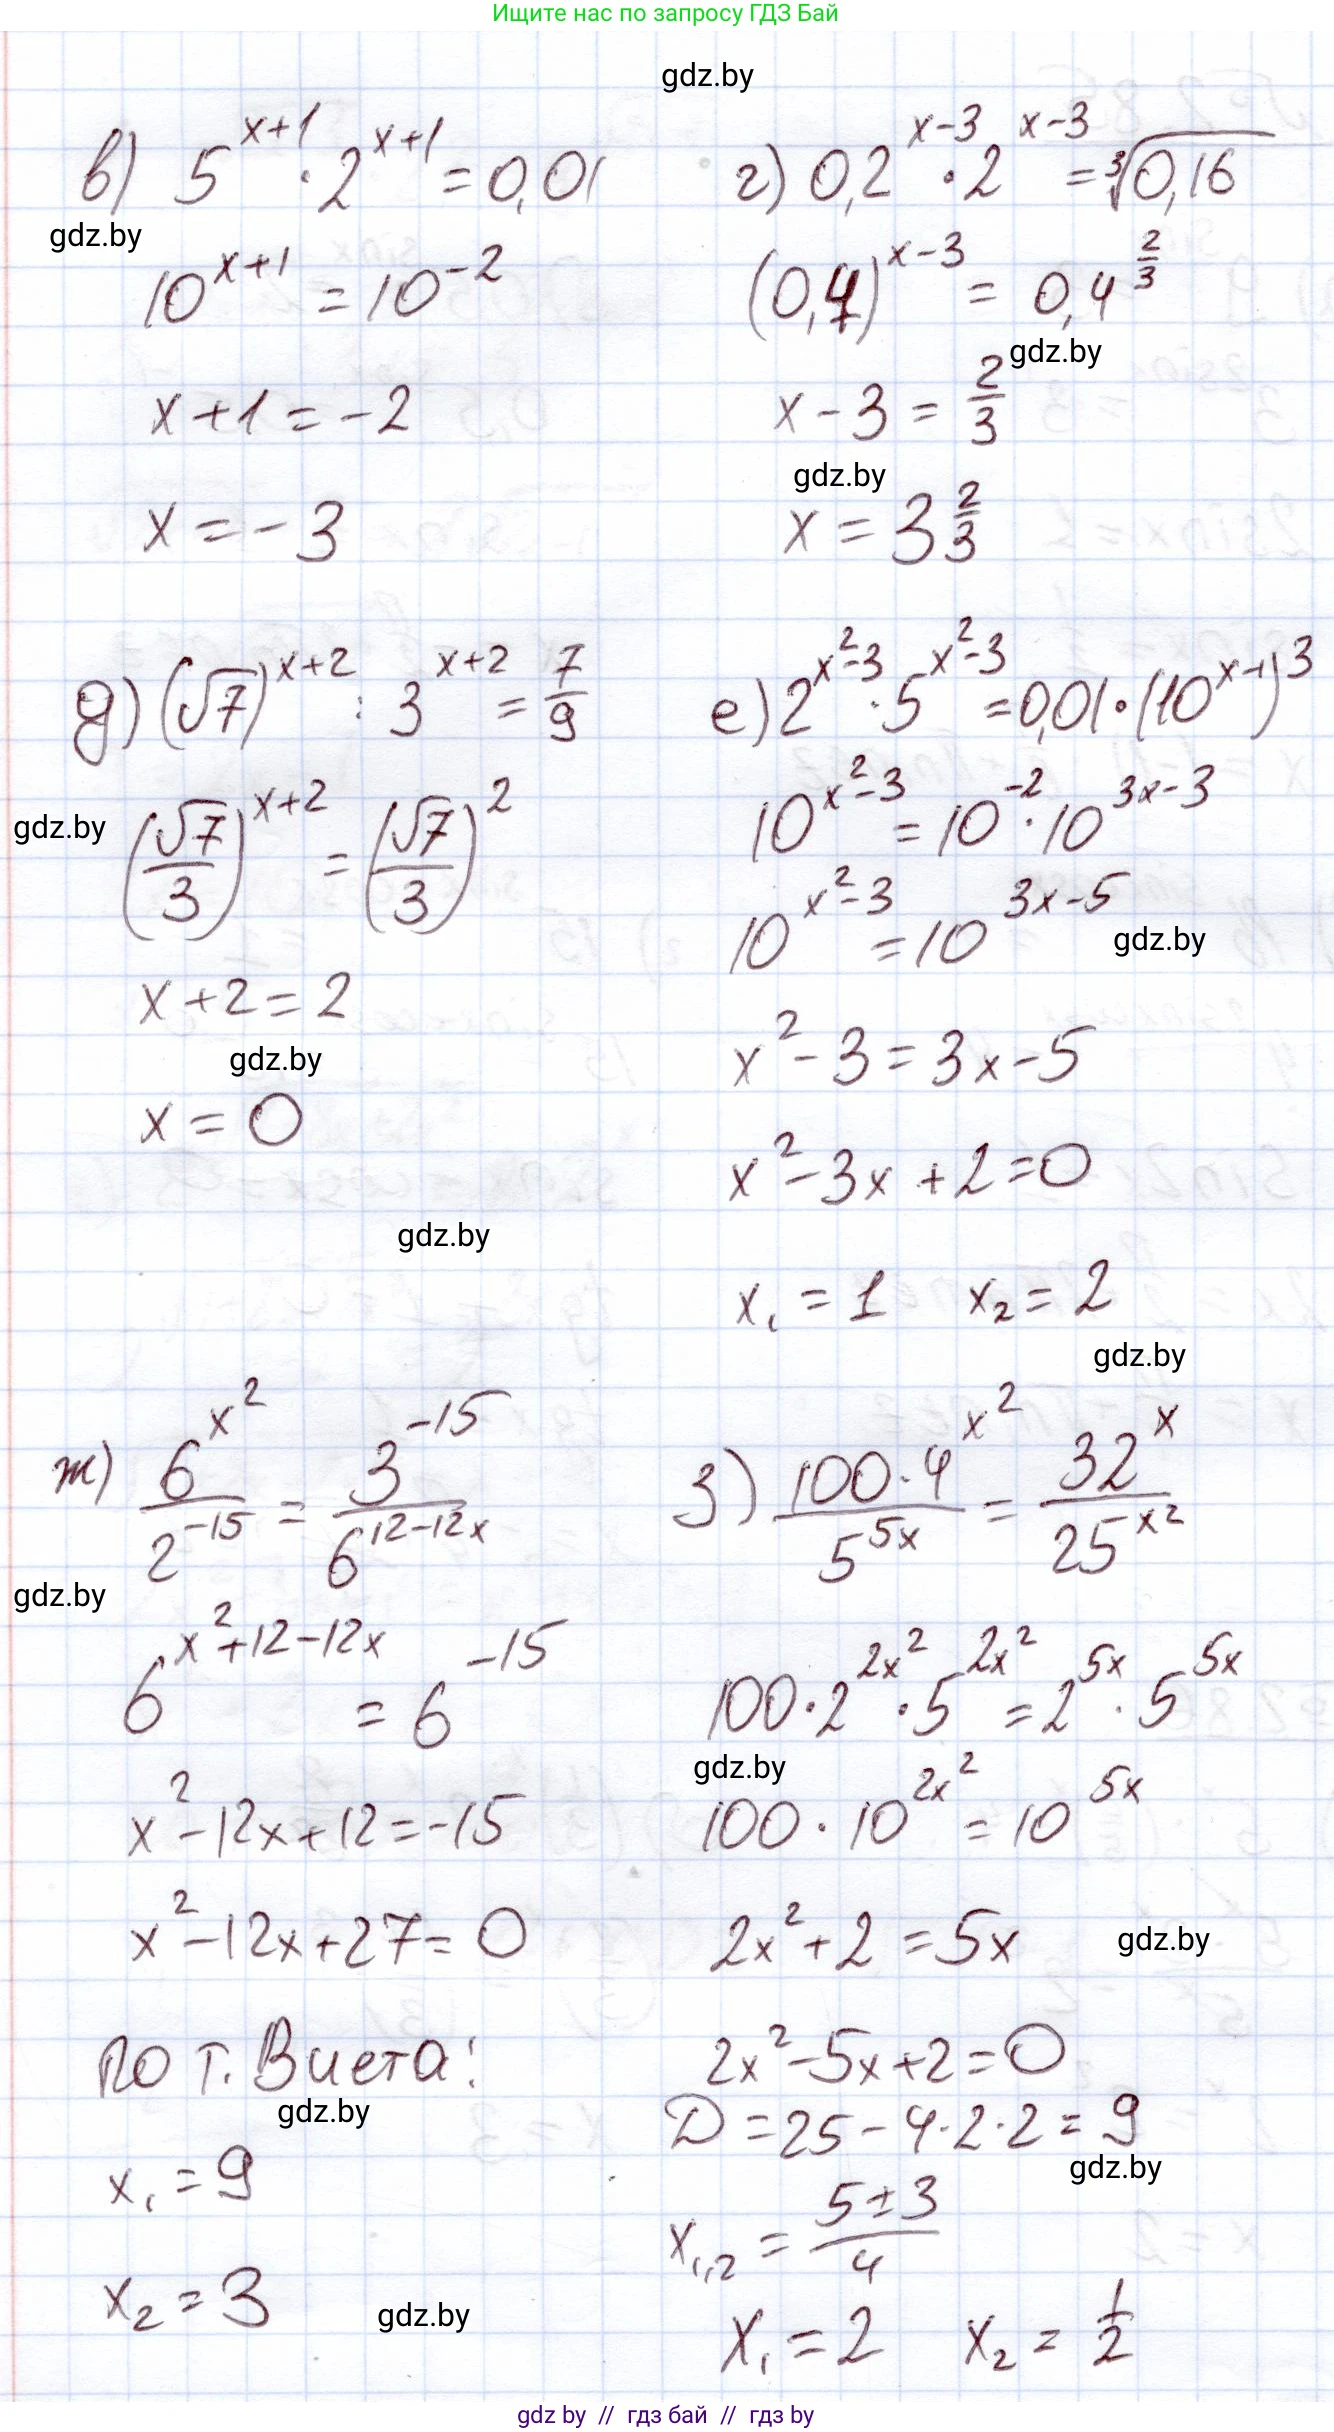 Ищите нас по запросу ГДЗ Бай
gdz.by
в) 5^(x+1) · 2^(x+1) = 0,01
gdz.by
10^(x+1) = 10^(-2)
x+1 = -2
x = -3
г) 0,2^(x-3) · 2^(x-3) = ∛0,16
(0,4)^(x-3) = 0,4^(2/3)
gdz.by
x-3 = 2/3
gdz.by
x = 3 2/3
д) (√7)^(x+2) : 3^(x+2) = 7/9
gdz.by
(√7/3)^(x+2) = (√7/3)^2
x+2 = 2
gdz.by
x = 0
gdz.by
е) 2^(x²-3) · 5^(x²-3) = 0,01 · (10^(x-1))^3
10^(x²-3) = 10^(-2) · 10^(3x-3)
10^(x²-3) = 10^(3x-5)
gdz.by
x² - 3 = 3x - 5
x² - 3x + 2 = 0
x₁ = 1 x₂ = 2
gdz.by
ж) 6^(x²) / 2^(-15) = 3^(-15) / 6^(12-12x)
gdz.by
6^(x²+12-12x) = 6^(-15)
x² - 12x + 12 = -15
x² - 12x + 27 = 0
по т. Виета:
gdz.by
x₁ = 9
x₂ = 3
gdz.by
з) 100·4^(x²) / 5^(5x) = 32^x / 25^(x²)
100 · 2^(2x²) · 5^(2x²) = 2^(5x) · 5^(5x)
gdz.by
100 · 10^(2x²) = 10^(5x)
2x² + 2 = 5x
gdz.by
2x² - 5x + 2 = 0
D = 25 - 4·2·2 = 9
gdz.by
x₁,₂ = (5±3)/4
x₁ = 2 x₂ = 1/2
gdz by // гдз бай // gdz by